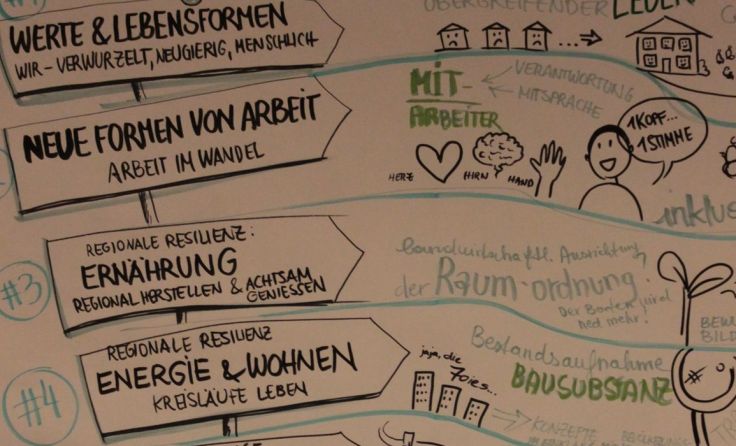 WERTE & LEBENSFORMEN
WIR - VERWURZELT, NEUGIERIG, MENSCHLICH
ÜBERGREIFENDER
NEUE FORMEN VON ARBEIT
ARBEIT IM WANDEL
MIT-
ARBEITER
VERANTWORTUNG
MITSPRACHE
HERZ
HIRN
HAND
1 KOPF...
1 STIMME
inklus
#3
REGIONALE RESILIENZ:
ERNÄHRUNG
REGIONAL HERSTELLEN & ACHTSAM
GENIESSEN
landwirtschaftl. Ausrichtung
der Raum-ordnung.
Der Boden wird
ned mehr!
BEW
BILD
#4
REGIONALE RESILIENZ
ENERGIE & WOHNEN
KREISLÄUFE LEBEN
jaja, die
70ies...
Bestandsaufnahme
BAUSUBSTANZ
KONZEPTE